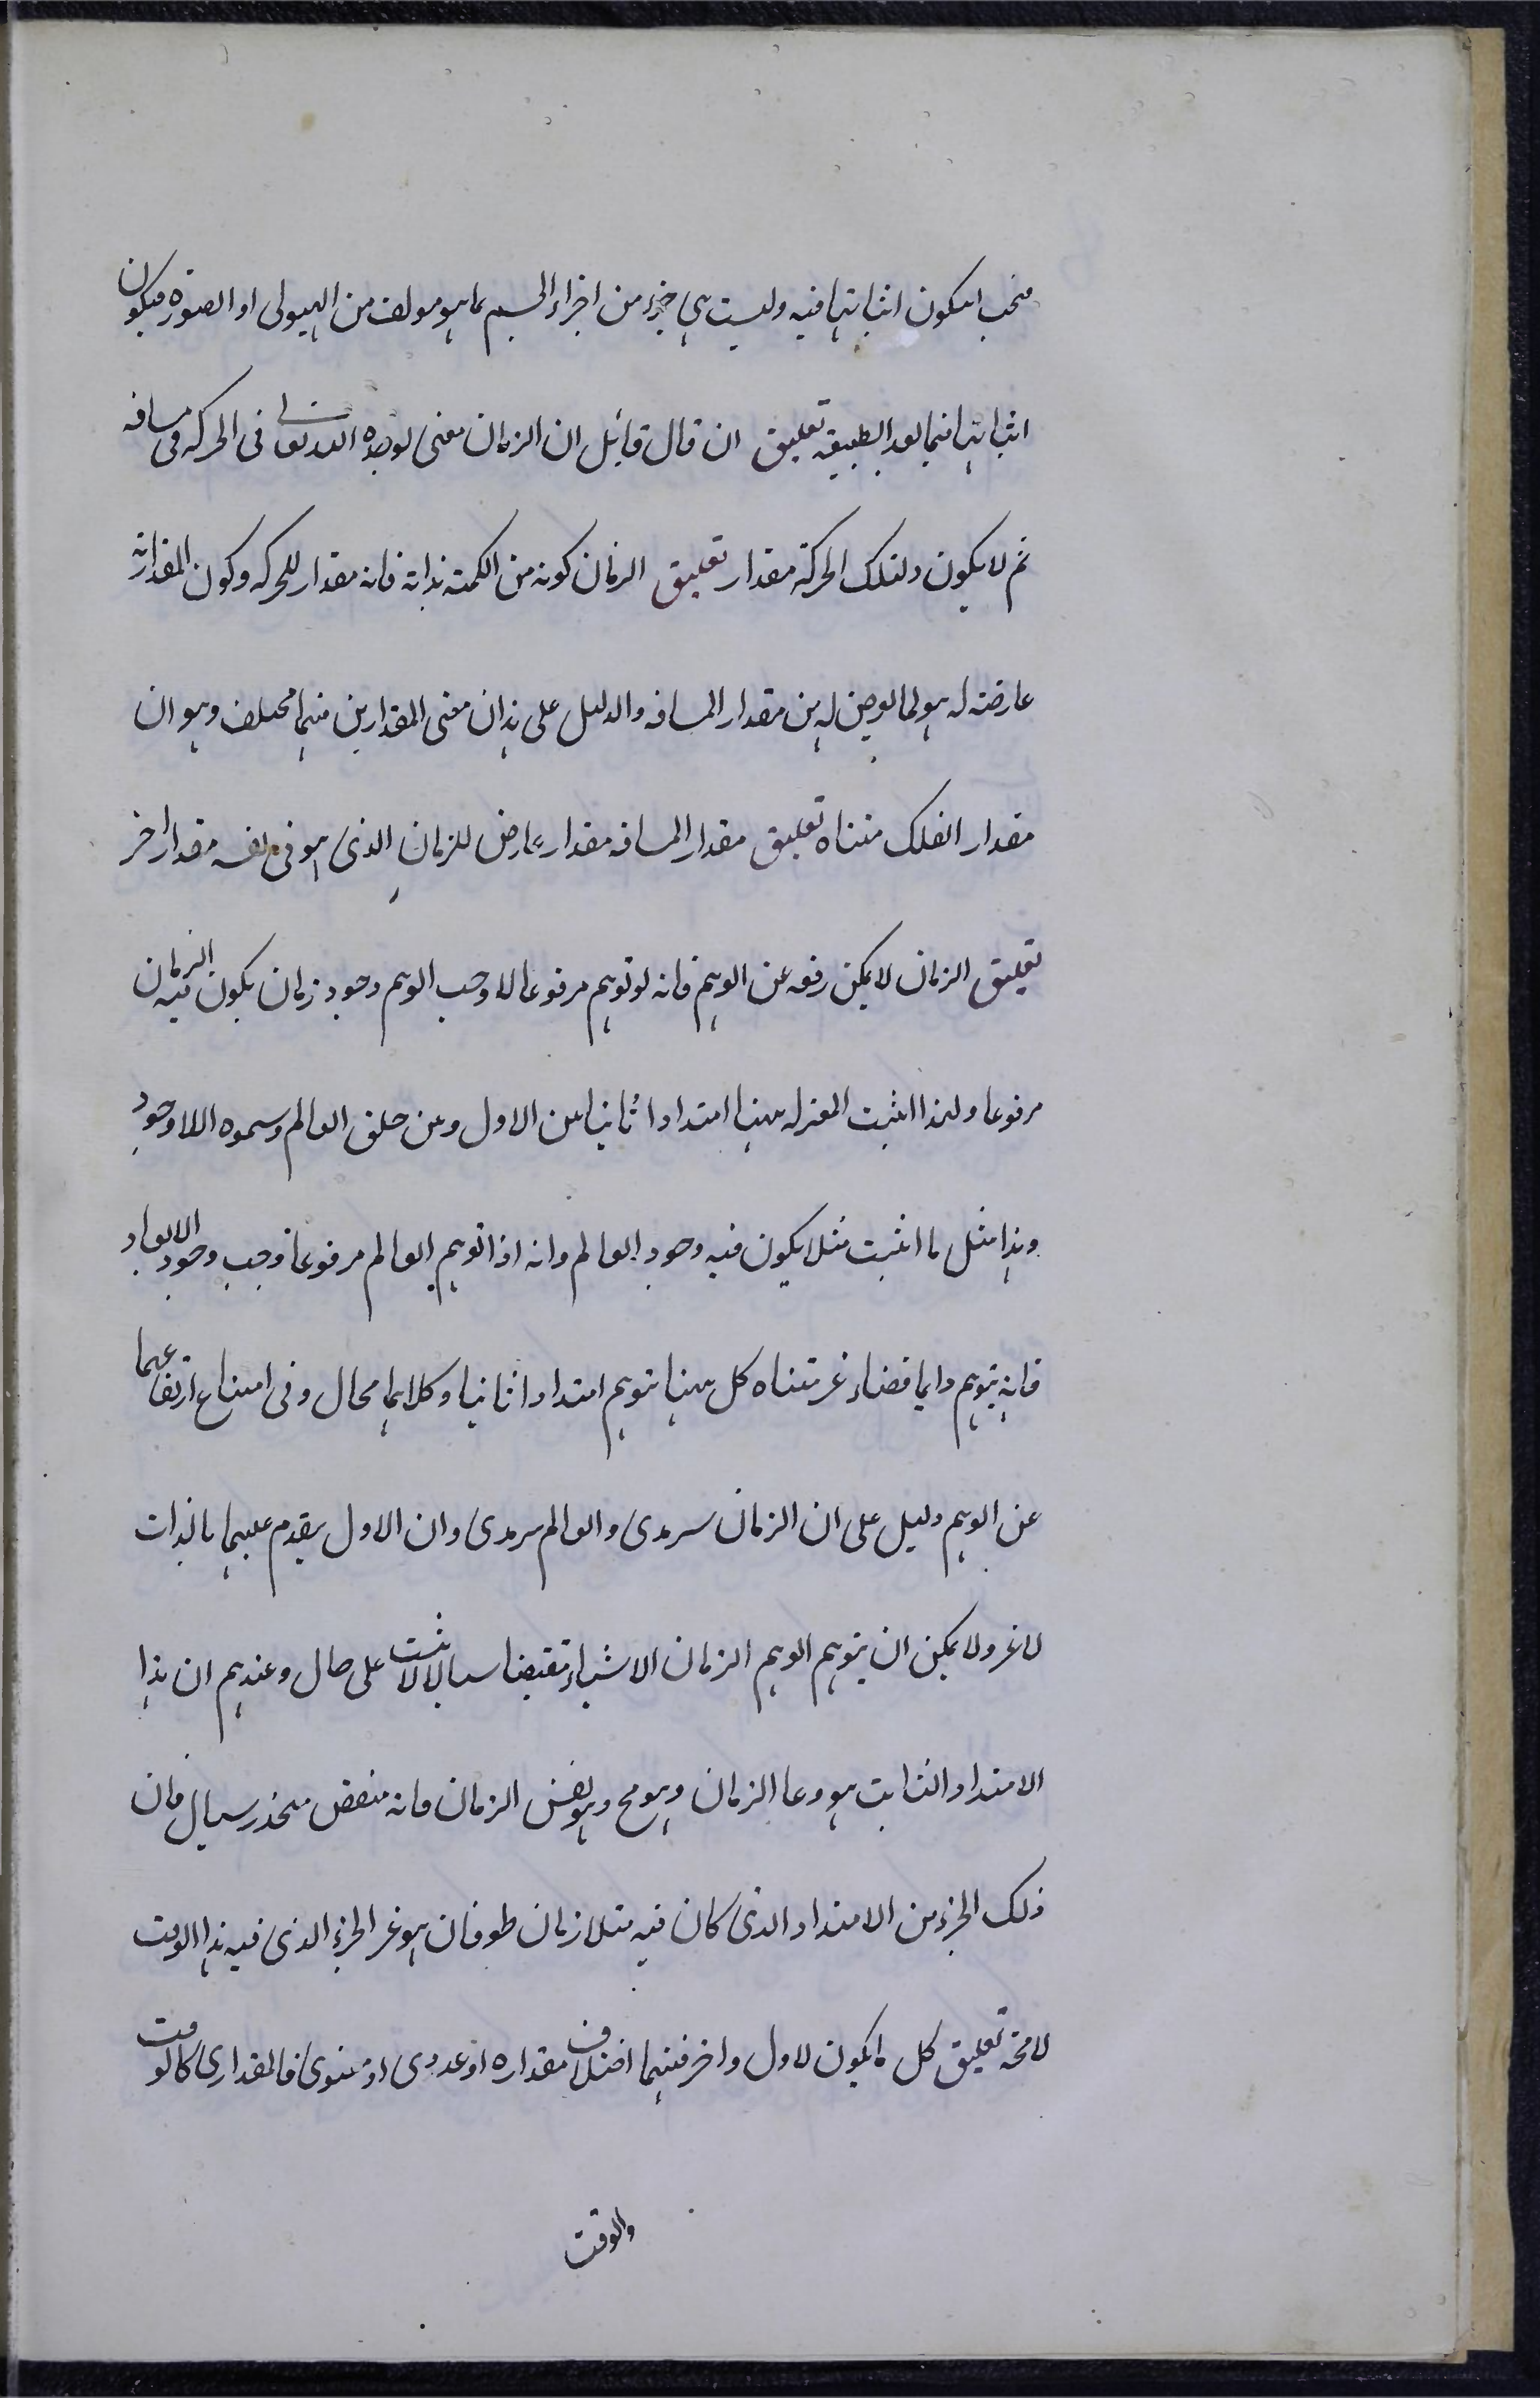 فيجب ان يكون اثباتها فيه وليست هى جزء من اجزاء الجسم بما هو مولف من الهيولى او الصورة فيكون
اثباتها فيما بعد الطبيعة تعليق ان قال قائل ان الزمان معنى يوجده الله تعالى فى الحركه فى مسافه
ثم لا يكون لتلك الحركة مقدار تعليق الزمان كونه من الكمية بذاته فانه مقدار للحركه وكون المقدارية
عارضة له هو لما يعرض له من مقدار المسافه والدليل على هذا ان معنى المقدارين فيهما مختلف وهو ان
مقدار الفلك متناه تعليق مقدار المسافه مقدار عارض للزمان الذى هو فى نفسه مقدار اخر
تعليق الزمان لا يمكن رفعه عن الوهم فانه لو توهم مرفوعا لاوجب الوهم وجود زمان يكون فيه الزمان
مرفوعا ولهذا اثبت المعتزله ههنا امتدادا ثابتا بين الاول وبين خلق العالم وسموه اللاوجود
وهذا مثل ما اثبت مثلا يكون فيه وجود العالم وانه اذا توهم العالم مرفوعا وجب وجود الابعاد
فانه يتوهم دايما فضاء غير متناه كل ههنا يتوهم امتدادا ثانيا وكلاهما محال وفى امتناع ارتفاعهما
عن الوهم دليل على ان الزمان سرمدى والعالم سرمدى وان الاول يتقدم عليهما بالذات
لا غير ولا يمكن ان يتوهم الوهم الزمان الا شياء متقضيا سيالا لا يثبت على حال وعندهم ان هذا
الامتداد الثابت هو وعا الزمان وهو مح وهو نفس الزمان فانه منقض متجدد سيال فان
ذلك الجزء من الامتداد الذى كان فيه مثلا زمان طوفان هو غير الجزء الذى فيه هذا الوقت
لا محة تعليق كل ما يكون لاول واخر فبينهما اختلاف مقداره او عددى او معنوى فالمقدارى كالوقت
والوقت